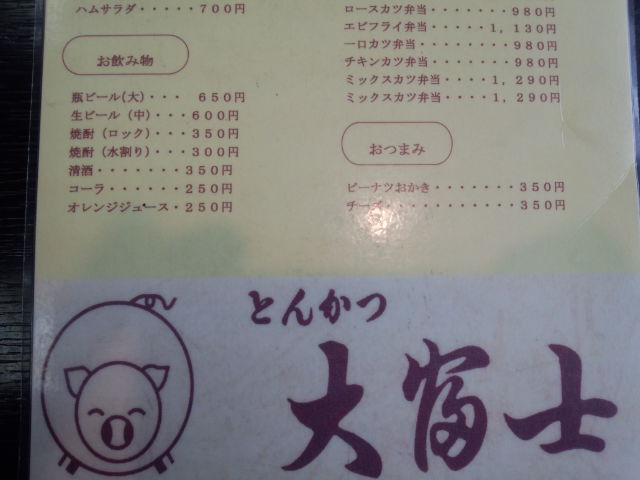 ハムサラダ・・・・・７００円
お飲み物
瓶ビール(大)・・・ ６５０円
生ビール（中）・・・６００円
焼酎（ロック）・・・３５０円
焼酎（水割り）・・・３００円
清酒・・・・・・・３５０円
コーラ・・・・・・２５０円
オレンジジュース・２５０円
ロースカツ弁当・・・・・・・９８０円
エビフライ弁当・・・・・１，１３０円
一口カツ弁当・・・・・・・・９８０円
チキンカツ弁当・・・・・・・９８０円
ミックスカツ弁当・・・・１，２９０円
ミックスカツ弁当・・・・１，２９０円
おつまみ
ピーナツおかき・・・・・・・３５０円
チーズ・・・・・・・・・・・３５０円
とんかつ
大富士